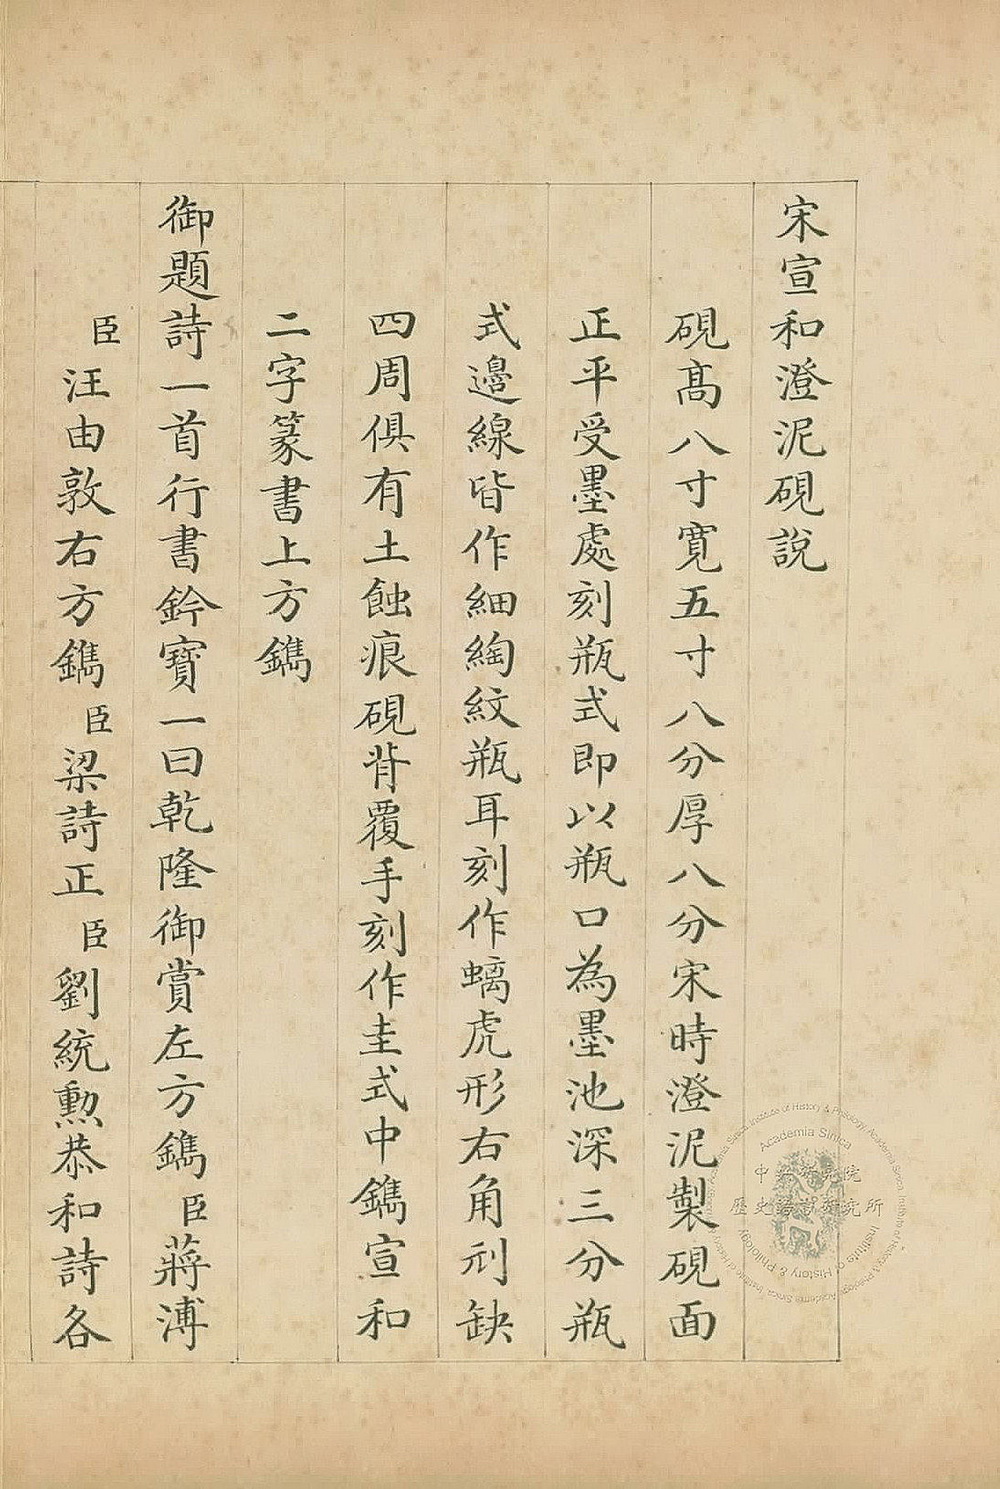 宋宣和澄泥硯說
硯髙八寸寛五寸八分厚八分宋時澄泥製硯面
正平受墨處刻瓶式即以瓶口為墨池深三分瓶
式邊線皆作細綯紋瓶耳刻作螭虎形右角刓缺
四周俱有土蝕痕硯背覆手刻作圭式中鐫宣和
二字篆書上方鐫
御題詩一首行書鈐寶一曰乾隆御賞左方鐫臣蔣溥
臣汪由敦右方鐫臣梁詩正臣劉統勲恭和詩各
Academia Sinica
中央研究院
歷史語言研究所
Institute of History & Philology